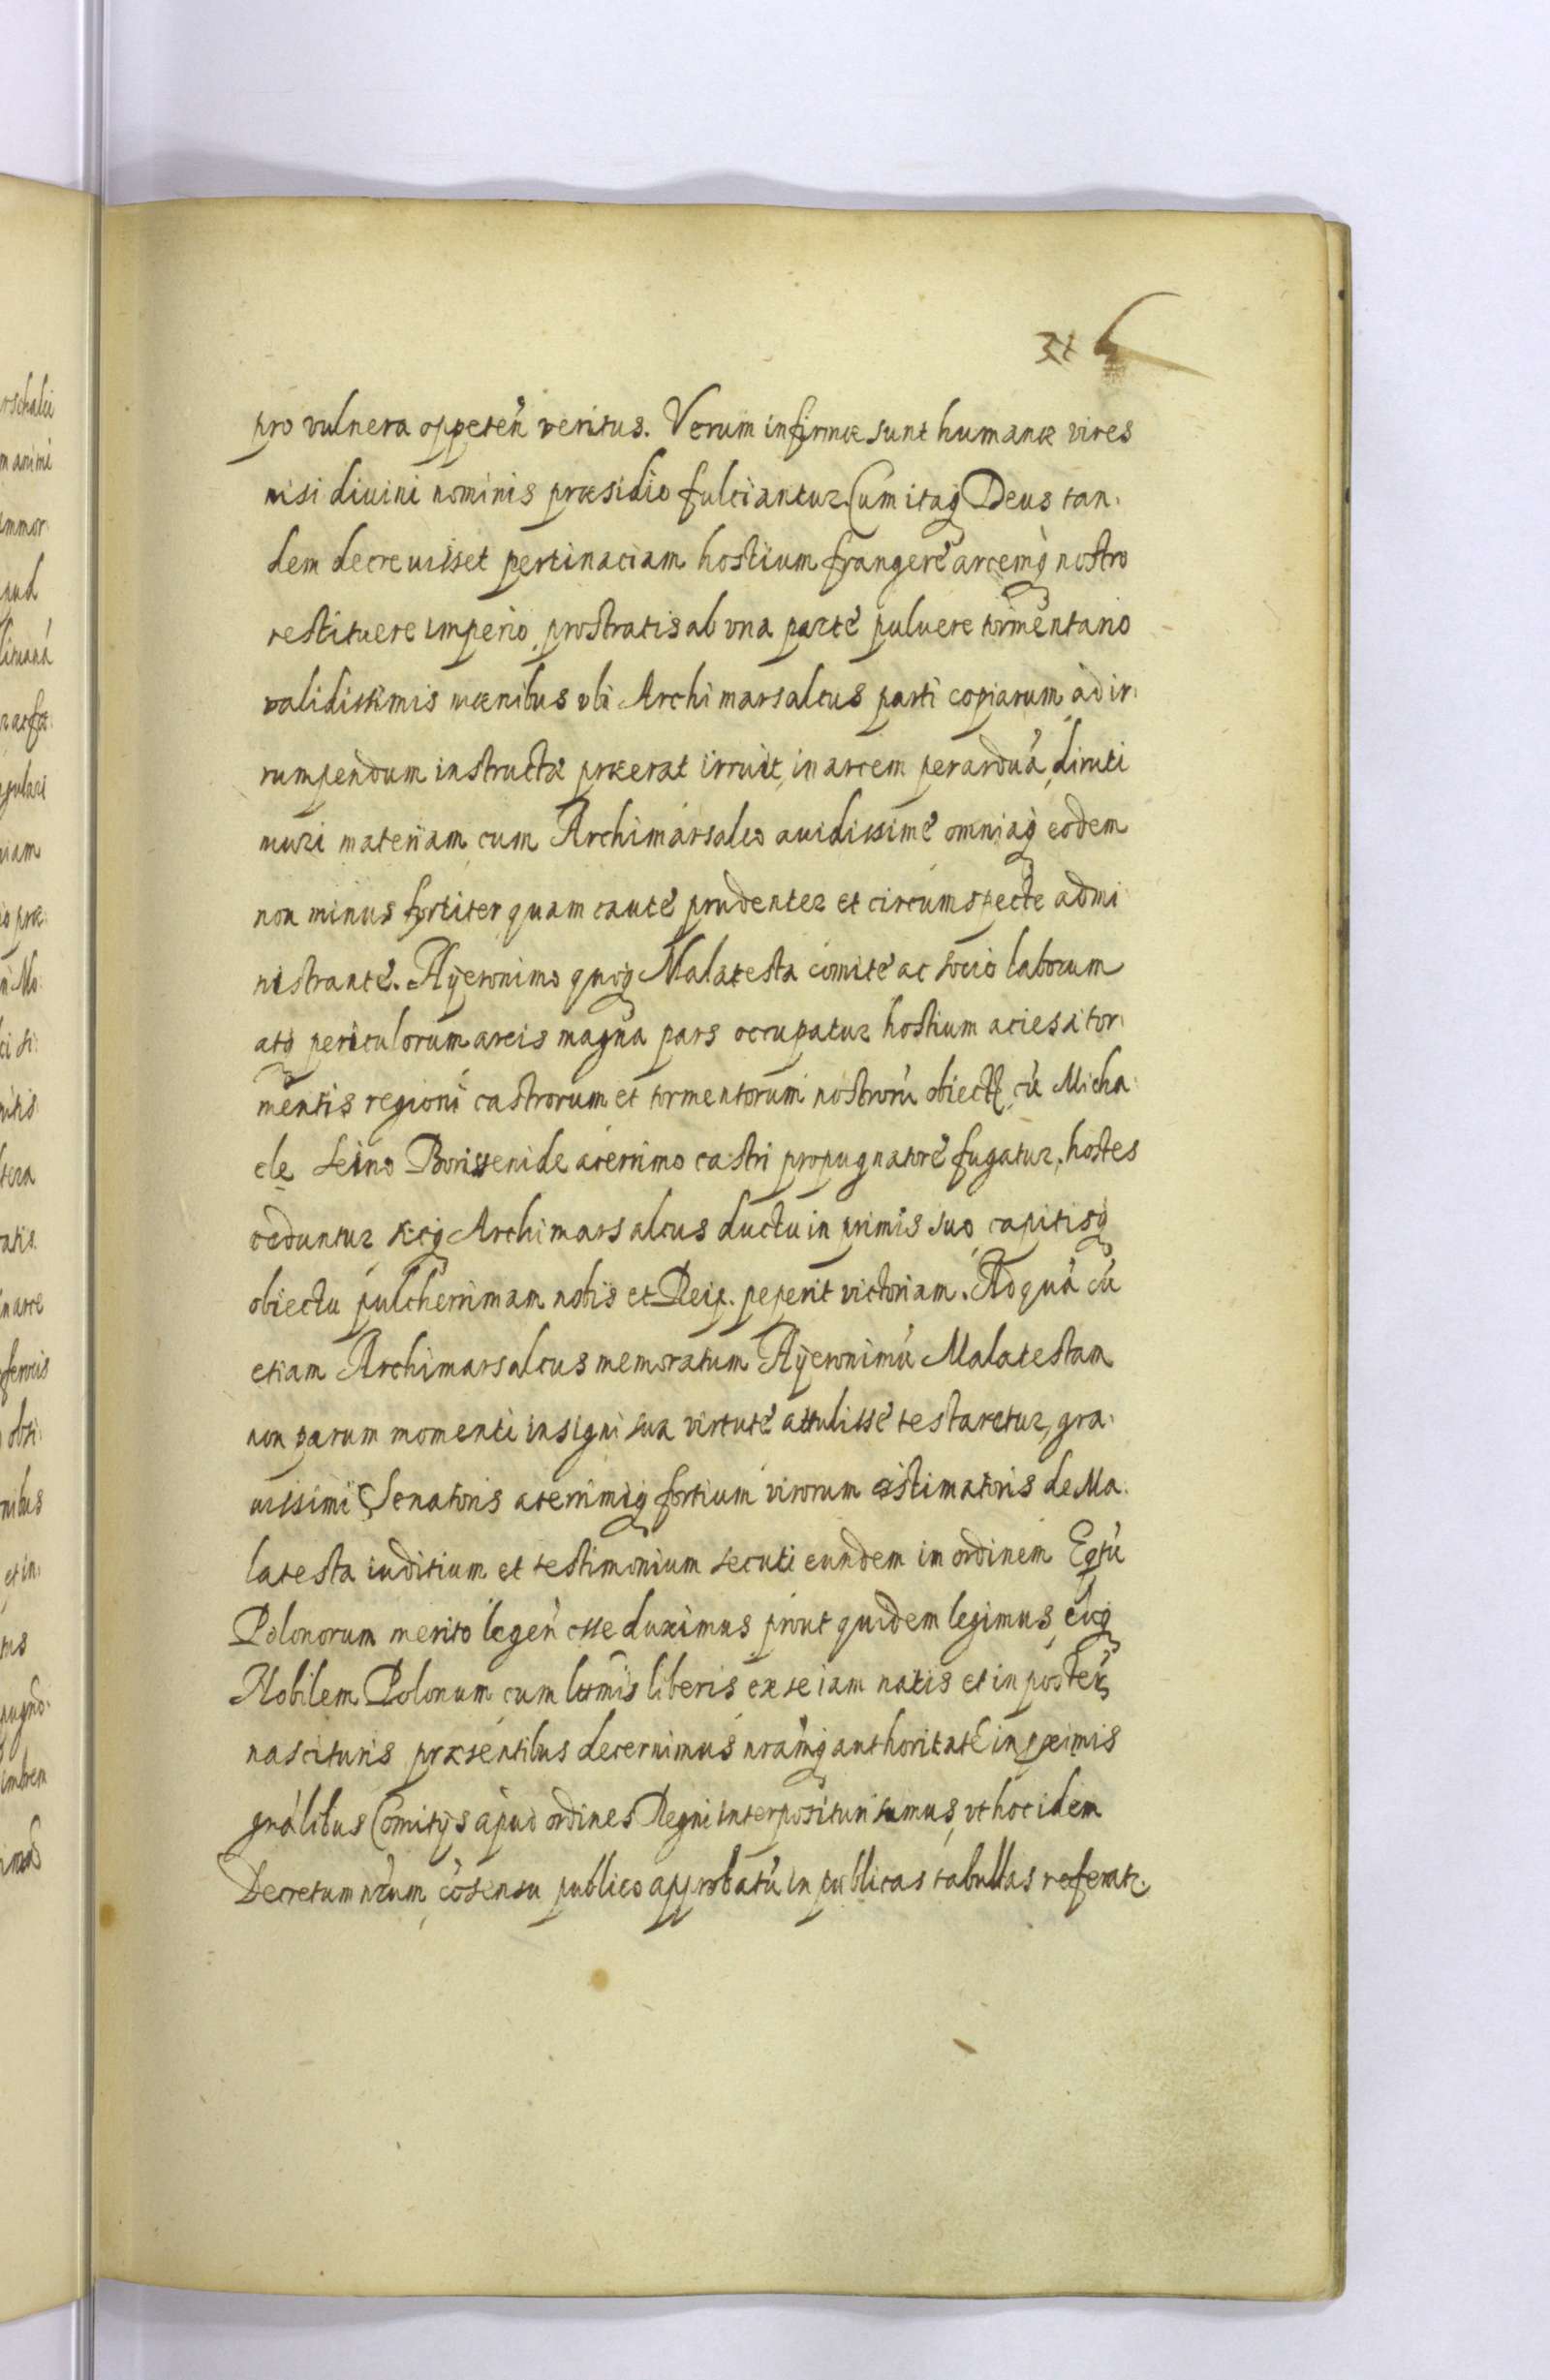 pro vulnera oppeteñ veritus. Verum infirmæ sunt humanæ vires
nisi diuini nominis præsidio fulciantur. Cum itaq Deus tan:
dem decreuisset pertinaciam hostium frangere arcemq̀ nostro
restituere imperio, prostratis ab vna parte puluere tormentario
validissimis mœnibus vbi Archimarsalcus parti copiarum ad ir:
rumpendum instructæ præerat irruit, in arcem perarduá, diruti
muri materiam cum Archimarsalco auidissimè omniaq̀ eodem
non minus fortiter quam cautè prudenter et circumspecte admi
nistrante. Hÿeronimo quoq̀ Malatesta comite ac socio laborum
atq̀ periculorum arcis magna pars occupatur hostium acies a tor:
mentis regioni castrorum et tormentorum nostrorú cú Micha:
ele Seino Borissenide acerrimo castri propugnatore fugatur, hostes
ceduntur sicq̀ Archimarsalcus ductu in primis suo capitisq̀
obiectu pulcherrimam nobis et Reip. peperit victoriam. Ad quá cú
etiam Archimarsalcus memoratum Hÿeronimú Malatestam
non parum momenti insigni sua virtute attulisse testaretur, gra:
uissimi Senatoris acerrimiq̀ fortium virorum æstimatoris de Ma:
latesta iuditium et testimonium secuti eundem in ordinem Eqtú
Polonorum merito legeñ esse duximus prout quidem legimus, euq̀
Nobilem Polonum cum liberis ex se iam natis et in poster
nascituris præsentibus decernimus nramq̀ authoritate in pximis
gnálibus Comitÿs apud ordines Regni interposituri sumus, vt hoc idem
Decretum nrum cósensu publico approbatú in publicas tabullas referatr.